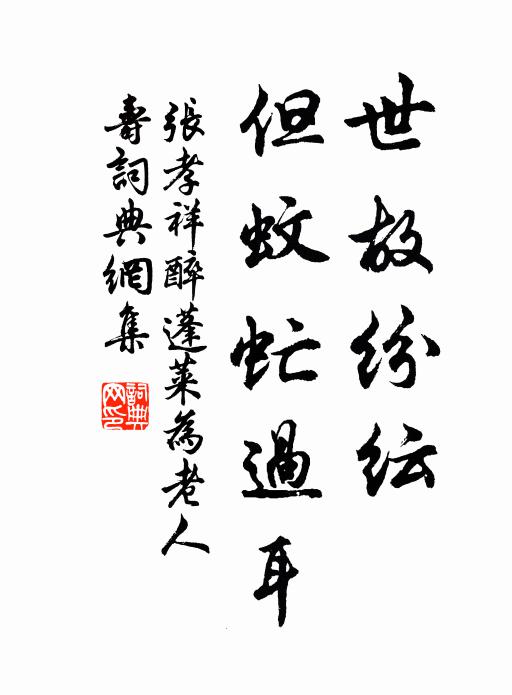 世故紛紜
但蚊虻過耳
張孝祥醉蓬萊為老人
壽詞典網集
詞典
网印